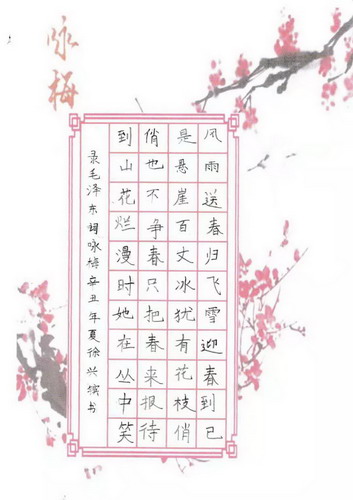 咏梅
风雨送春归飞雪迎春到已
是悬崖百丈冰犹有花枝俏
俏也不争春只把春来报待
到山花烂漫时她在丛中笑
录毛泽东词咏梅辛丑年夏徐兴书